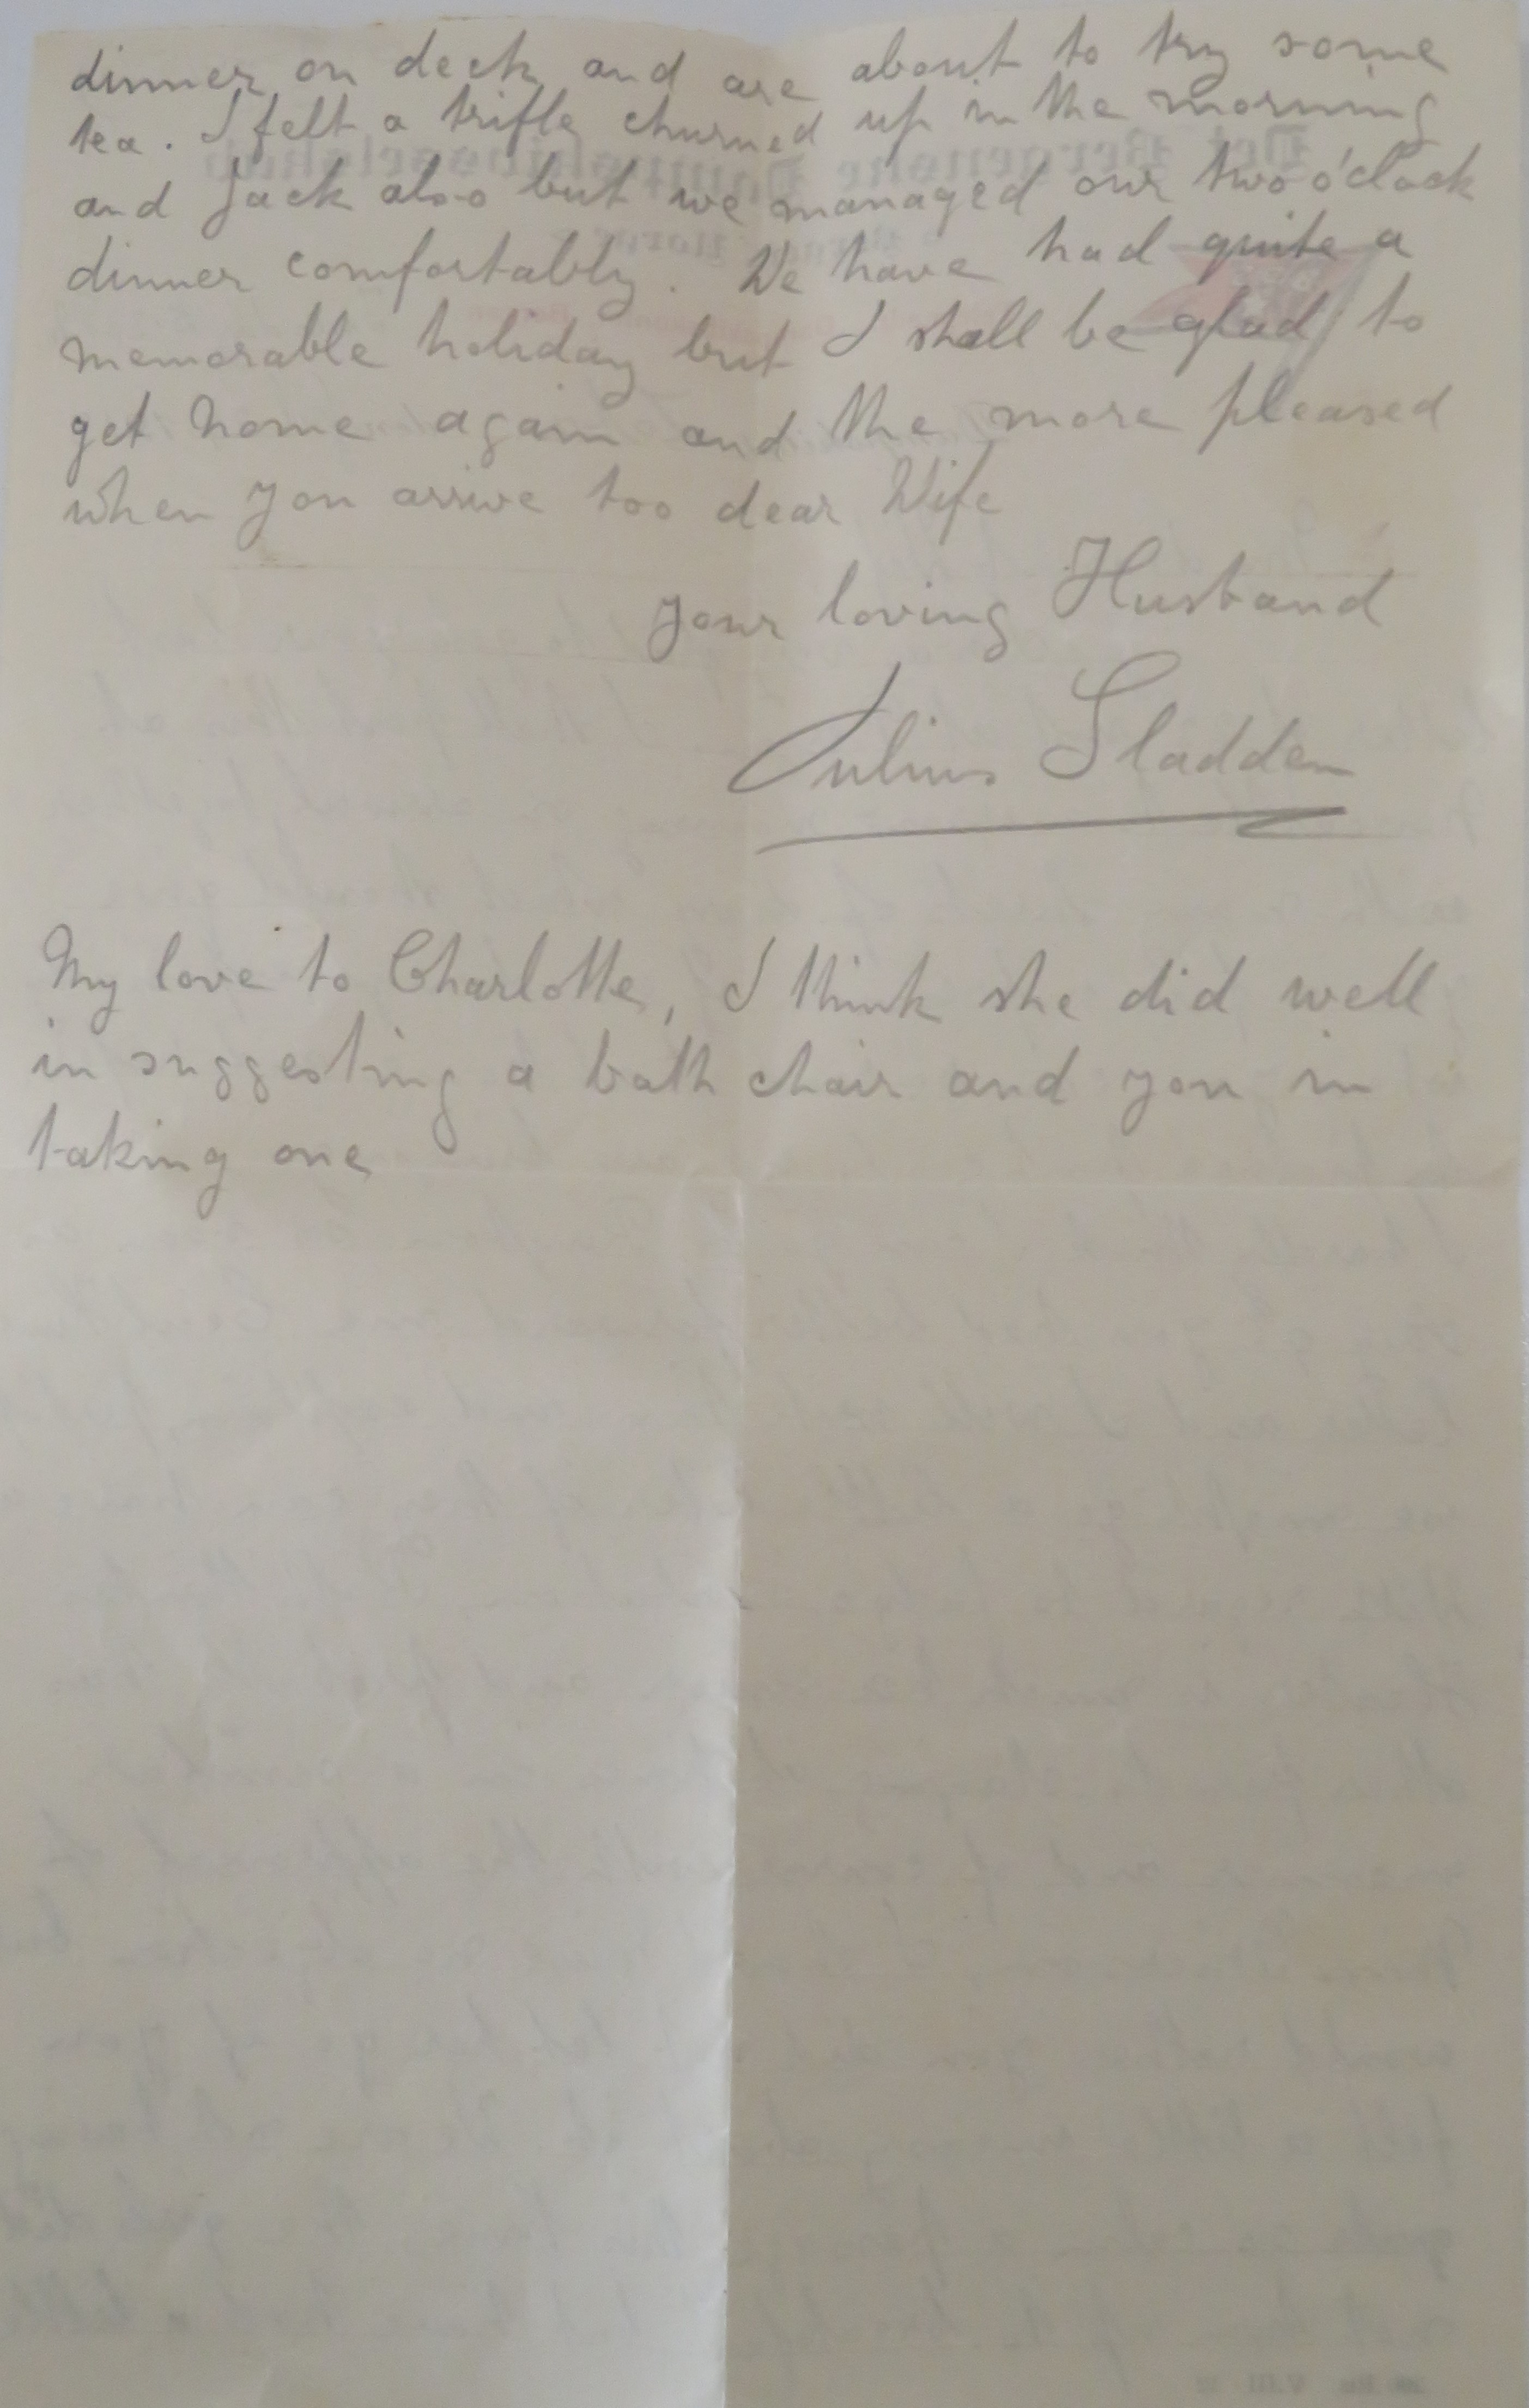 dinner on deck and are about to try some
tea. I felt a trifle churned up in the morning
and Jack also but we managed our two o'clock
dinner comfortably. We have had quite a
memorable holiday but I shall be glad to
get home again and the more pleased
when you arrive too dear Wife
your loving Husband
Julius Sladden
My love to Charlotte, I think she did well
in suggesting a bath chair and you in
taking one